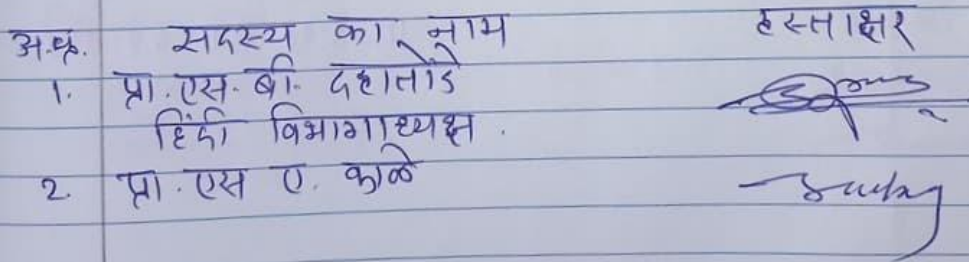 अ.क्र. सदस्य का नाम हस्ताक्षर
1. प्रा. एस. बी. दहातोंडे
हिंदी विभागाध्यक्ष.
2. प्रा. एस ए. काळे